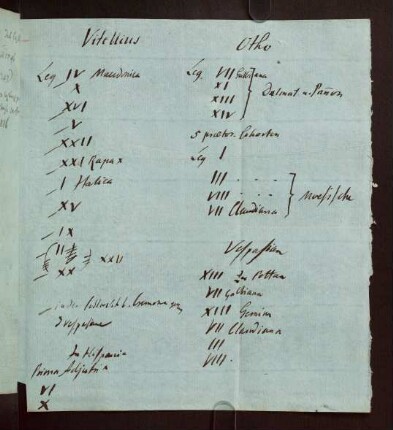 Vitellius
Leg IV Macedonica
X
XVI
V
XXII
XXI Rapax
I Italica
XV
IX
XXV
XX
in der
In Hispania
Prima Adjutrix
VI
X
Otho
Leg. VII Galbiana
XI
XIII
XIV
Dalmat u. Pannon
5 praetor. Cohorten
Leg I
III
VIII
VII Claudiana
Moesische
Vespasian
XIII
VII Galbiana
XIII Gemina
VII Claudiana
III
VIII.